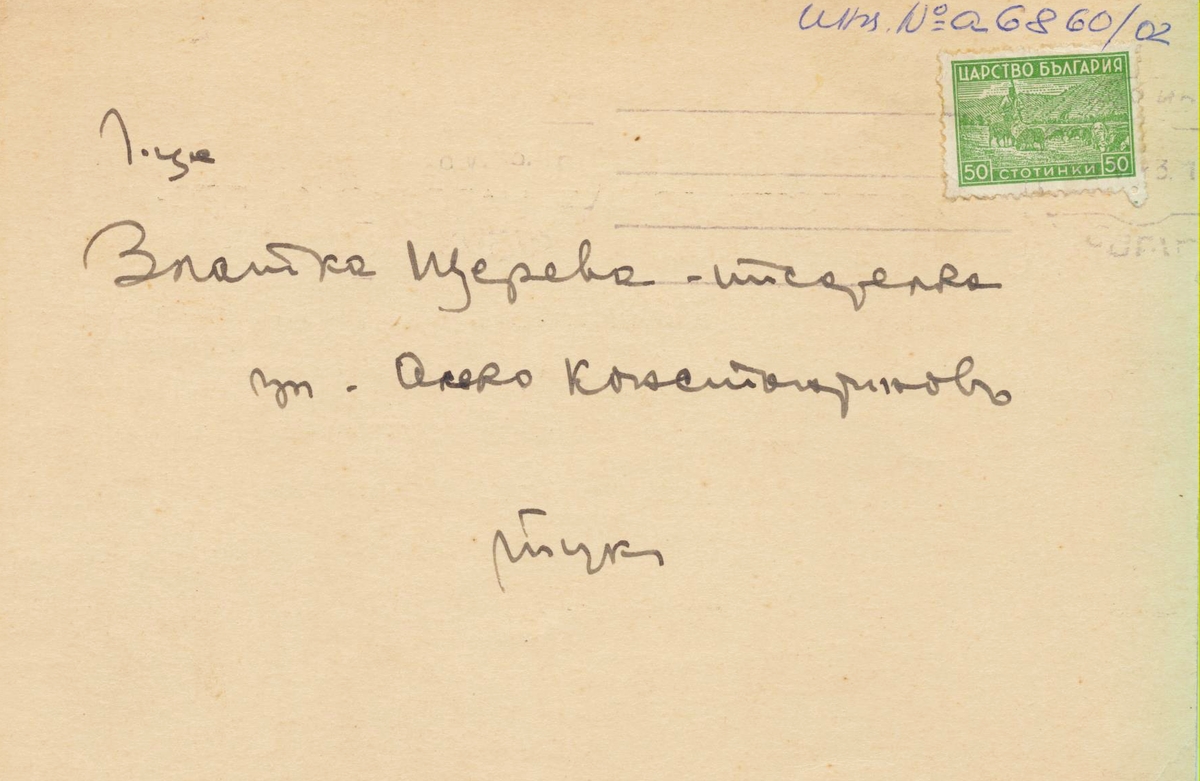 Инв. № а 6860/02
ЦАРСТВО БЪЛГАРИЯ
50 СТОТИНКИ 50
Г-ца
Златка Щерева - писателка
ул. Алеко Константиновъ
Тукъ